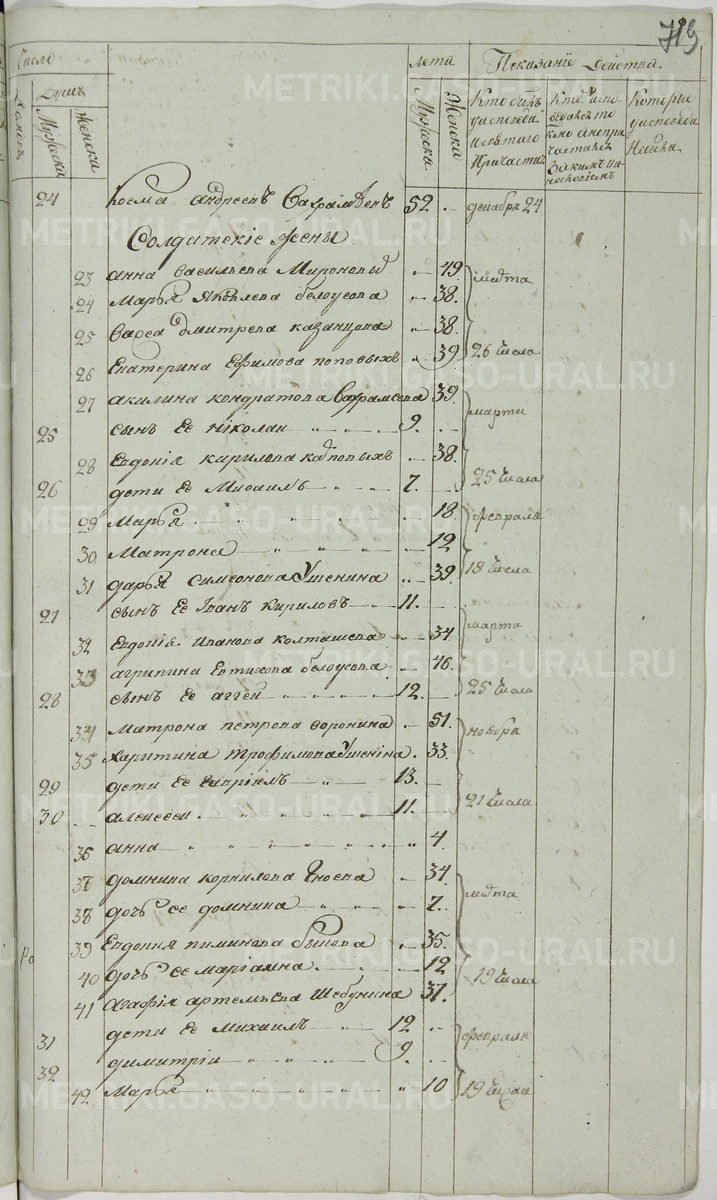 719
Числе
Лета Показание действа
Душъ
Мужеска Женски
Мужеска Женски
Кто былъ у исповеди и святаго причастия
Которые у исповеди небыли
24 Косма андреевъ 52 декабря 24
Солдатские жены
23 анна васильева Миронова 49
24 Марья Яковлева белоусова 38
25 дмитрева казанцова 38
26 Екатерина Ефимова поповыхъ 39 26 числа
27 акилина кондратова 39 марта
25 сынъ ее николаи 9
28 Евдокия кирилова 38
26 дети ее Михаилъ 7 25 числа
29 Марья 18 февраля
30 Матрона 12
31 дарья симеонова Ушенина 39 19 числа
27 сынъ ее Иванъ Кириловъ 11
32 Евдокия Иванова колташева 34 марта
33 агрипина Евтихова белоусова 46
28 сынъ ее аггей 12 25 числа
34 матрона петрова воронина 51 ноября
35 Харитина трофимова Ушенина 33
29 дети ее 13
30 алексеи 11 21 числа
36 анна 4
37 домнина корнилова 34
38 дочь ее домнина 7
39 Евдокия пиминова быкова 35
40 дочь ее мариамна 12 19 числа
41 Агафия артемьева Шебунина 37
31 дети ее михаилъ 12 февраля
32 димитрии 9
42 Марья 10 19 числа
METRIKI.GASO-URAL.RU